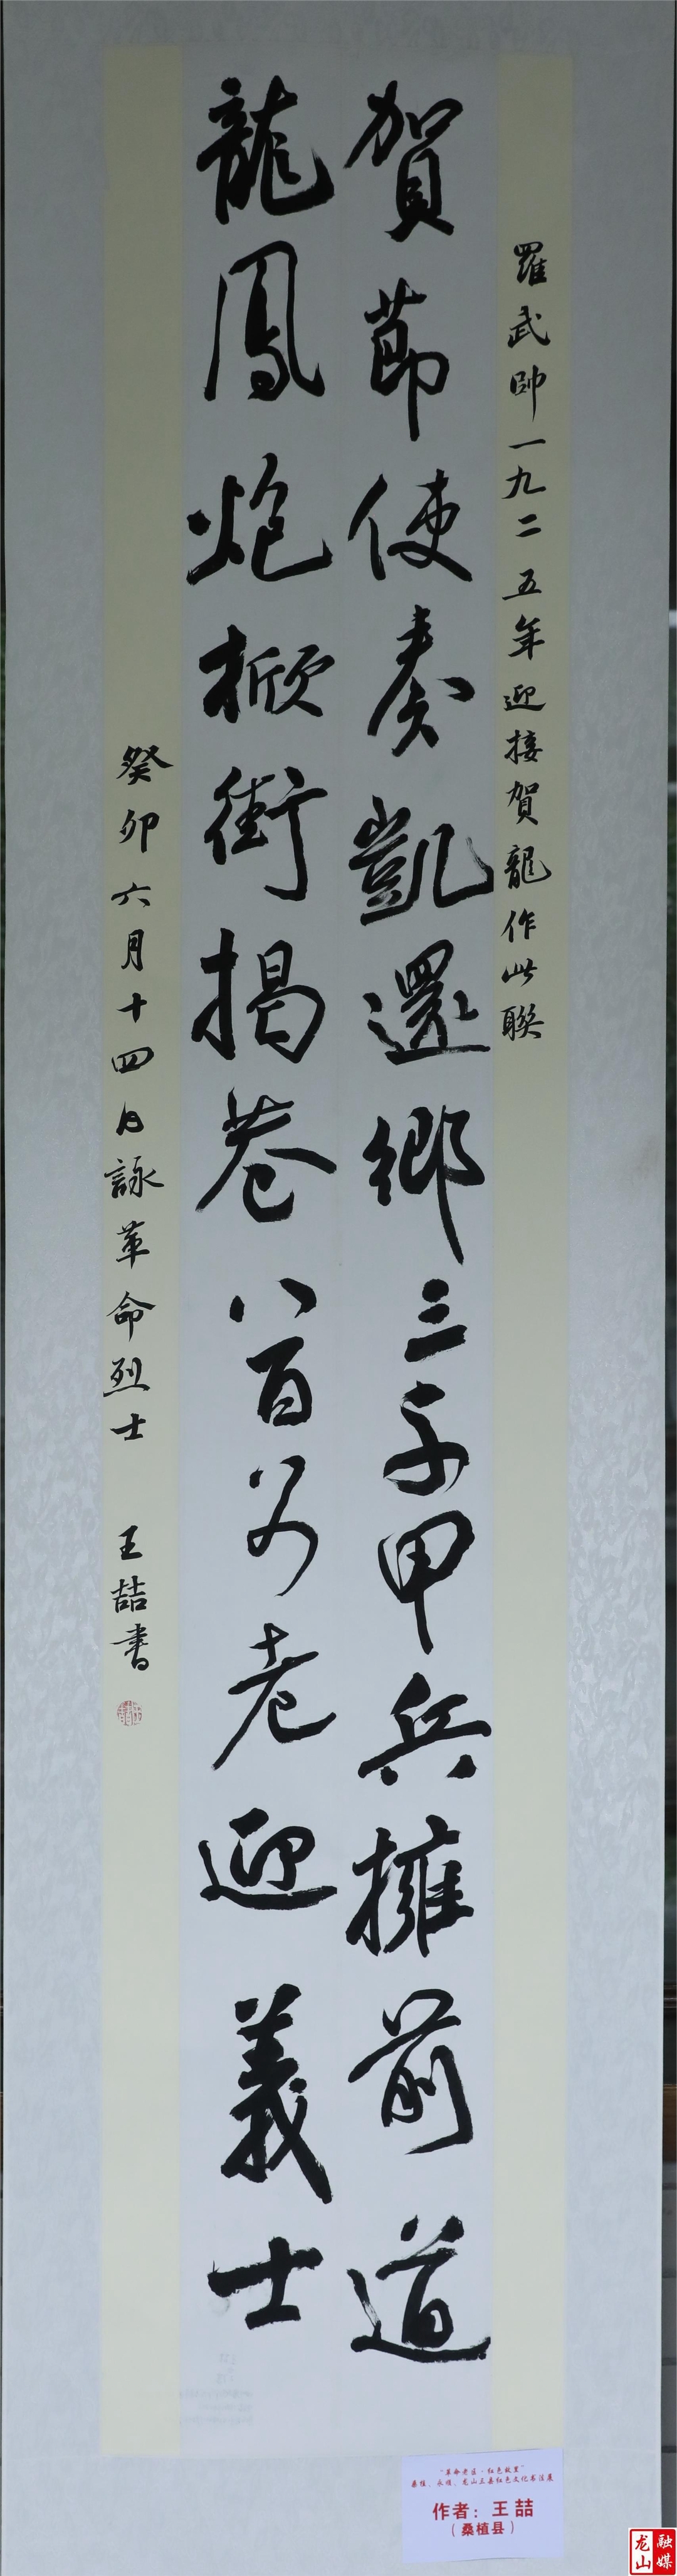 羅武帥一九二五年迎接賀龍作此聯
賀節使奏凱還鄉三千甲兵擁前道
龍鳳炮掀街揭巷八百父老迎義士
癸卯六月十四日詠革命烈士
王喆書
“革命老区·红色故里”
桑植、永顺、龙山三县红色文化书法展
作者：王喆
（桑植县）
龙山融媒